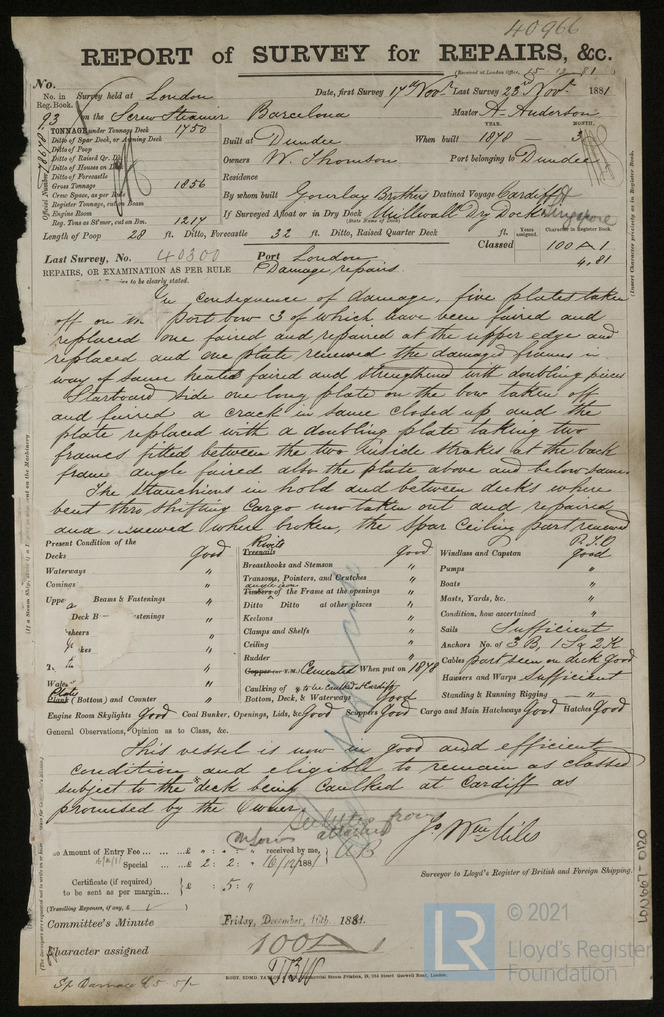 40966
REPORT of SURVEY for REPAIRS, &c.
(Received at London Office, 15.12.81)
No.
No. in Reg. Book. Survey held at London Date, first Survey 17th Novr. Last Survey 23rd Novr. 1881
93 on the Screw Steamer Barcelona Master A. Anderson
TONNAGE under Tonnage Deck 1750
Ditto of Spar Deck, or Awning Deck
Ditto of Poop
Ditto of Raised Qr. Dk
Ditto of Houses on Dk
Ditto of Forecastle
Gross Tonnage 1856
Crew Space, as per Rule
Register Tonnage, cut on Beam
Engine Room
Reg. Tons as St'mer, cut on Bm. 1217
Official Number
Built at Dundee When built YEAR. 1878 MONTH. 3
Owners W. Thomson Port belonging to Dundee
Residence
By whom built Gourlay Brothers Destined Voyage Cardiff &
If Surveyed Afloat or in Dry Dock Millwall Dry Dock Singapore
(State Name of Dock)
Length of Poop 28 ft. Ditto, Forecastle 32 ft. Ditto, Raised Quarter Deck ft. Years assigned. Character in Register Book.
Classed 100 A 1
4,81
Last Survey, No. 40300 Port London
REPAIRS, OR EXAMINATION AS PER RULE Damage repairs.
to be clearly stated.
In consequence of damage, five plates taken
off on the Port bow 3 of which have been faired and
replaced one faired and repaired at the upper edge and
replaced and one plate renewed the damaged frames in
way of same heated faired and strengthened with doubling pieces
Starboard side one long plate on the bow taken off
and faired a crack in same closed up and the
plate replaced with a doubling plate taking two
frames fitted between the two inside strakes at the back
frame angle faired also the plate above and below same.
The Stanchions in hold and between decks where
bent thro shifting Cargo now taken out and repaired
and renewed where broken, the spar Ceiling part renewed
P.T.O
Present Condition of the
Decks Good
Waterways "
Comings "
Upper Beams & Fastenings "
Deck B astenings "
Plate
Plank (Bottom) and Counter "
Rivets
Treenails Good
Breasthooks and Stemson "
Transoms, Pointers, and Crutches "
angle iron
Timbers of the Frame at the openings "
Ditto Ditto at other places "
Keelsons "
Clamps and Shelfs "
Ceiling "
Rudder "
Copper (or Y.M.) Cemented When put on 1878
Caulking of & to be caulked at Cardiff
Bottom, Deck, & Waterways Good
Windlass and Capston Good
Pumps "
Boats "
Masts, Yards, &c. "
Condition, how ascertained "
Sails Sufficient
Anchors No. of 3 B, 1 S & 2 K
Cables part seen on deck Good
Hawsers and Warps Sufficient
Standing & Running Rigging "
Engine Room Skylights Good Coal Bunker, Openings, Lids, &c Good Scuppers Good Cargo and Main Hatchways Good Hatches Good
General Observations, Opinion as to Class, &c.
This vessel is now in good and efficient
condition and eligible to remain as classed
subject to the deck being caulked at Cardiff as
promised by the Owner.
attached
AB
Jo Wm Miles
Amount of Entry Fee ... £ " : " : " received by me,
Special ... £ 2 : 2 : " 16/12/1881
Certificate (if required) to be sent as per margin... £ : 5 : "
(Travelling Expenses, if any, £ )
Surveyor to Lloyd's Register of British and Foreign Shipping.
Committee's Minute Friday, December, 16th. 1881.
Character assigned 100 A 1
LON667-0120
LR
© 2021
Lloyd's Register
Foundation